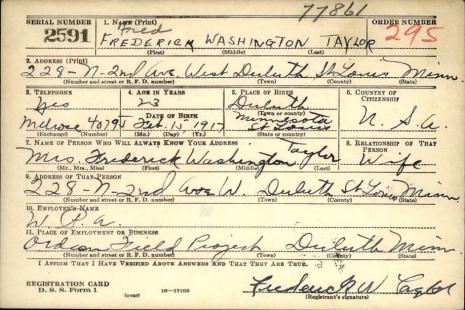 77861
SERIAL NUMBER 1. NAME (Print) ORDER NUMBER
Fred
2591 FREDERICK WASHINGTON TAYLOR 295
(First) (Middle) (Last)
2. ADDRESS (Print)
228-N-2nd Ave West Duluth St Louis Minn.
(Number and street or R. F. D. number) (Town) (County) (State)
3. TELEPHONE 4. AGE IN YEARS 5. PLACE OF BIRTH 6. COUNTRY OF CITIZENSHIP
Yes 23 Duluth
DATE OF BIRTH (Town or county)
Minnesota U.S.A.
Melrose 4879J Feb. 15-1917 St Louis
(Exchange) (Number) (Mo.) (Day) (Yr.) (State or country)
7. NAME OF PERSON WHO WILL ALWAYS KNOW YOUR ADDRESS 8. RELATIONSHIP OF THAT PERSON
Mrs. Frederick Washington Taylor Wife
(Mr., Mrs., Miss) (First) (Middle) (Last)
9. ADDRESS OF THAT PERSON
228-N-2nd Ave W. Duluth St Louis Minn
(Number and street or R. F. D. number) (Town) (County) (State)
10. EMPLOYER'S NAME
W.P.A.
11. PLACE OF EMPLOYMENT OR BUSINESS
Field Project Duluth Minn
(Number and street or R. F. D. number) (Town) (County) (State)
I AFFIRM THAT I HAVE VERIFIED ABOVE ANSWERS AND THAT THEY ARE TRUE.
Frederick W Taylor
REGISTRATION CARD
D. S. S. Form 1 (over) 16-17105 (Registrant's signature)